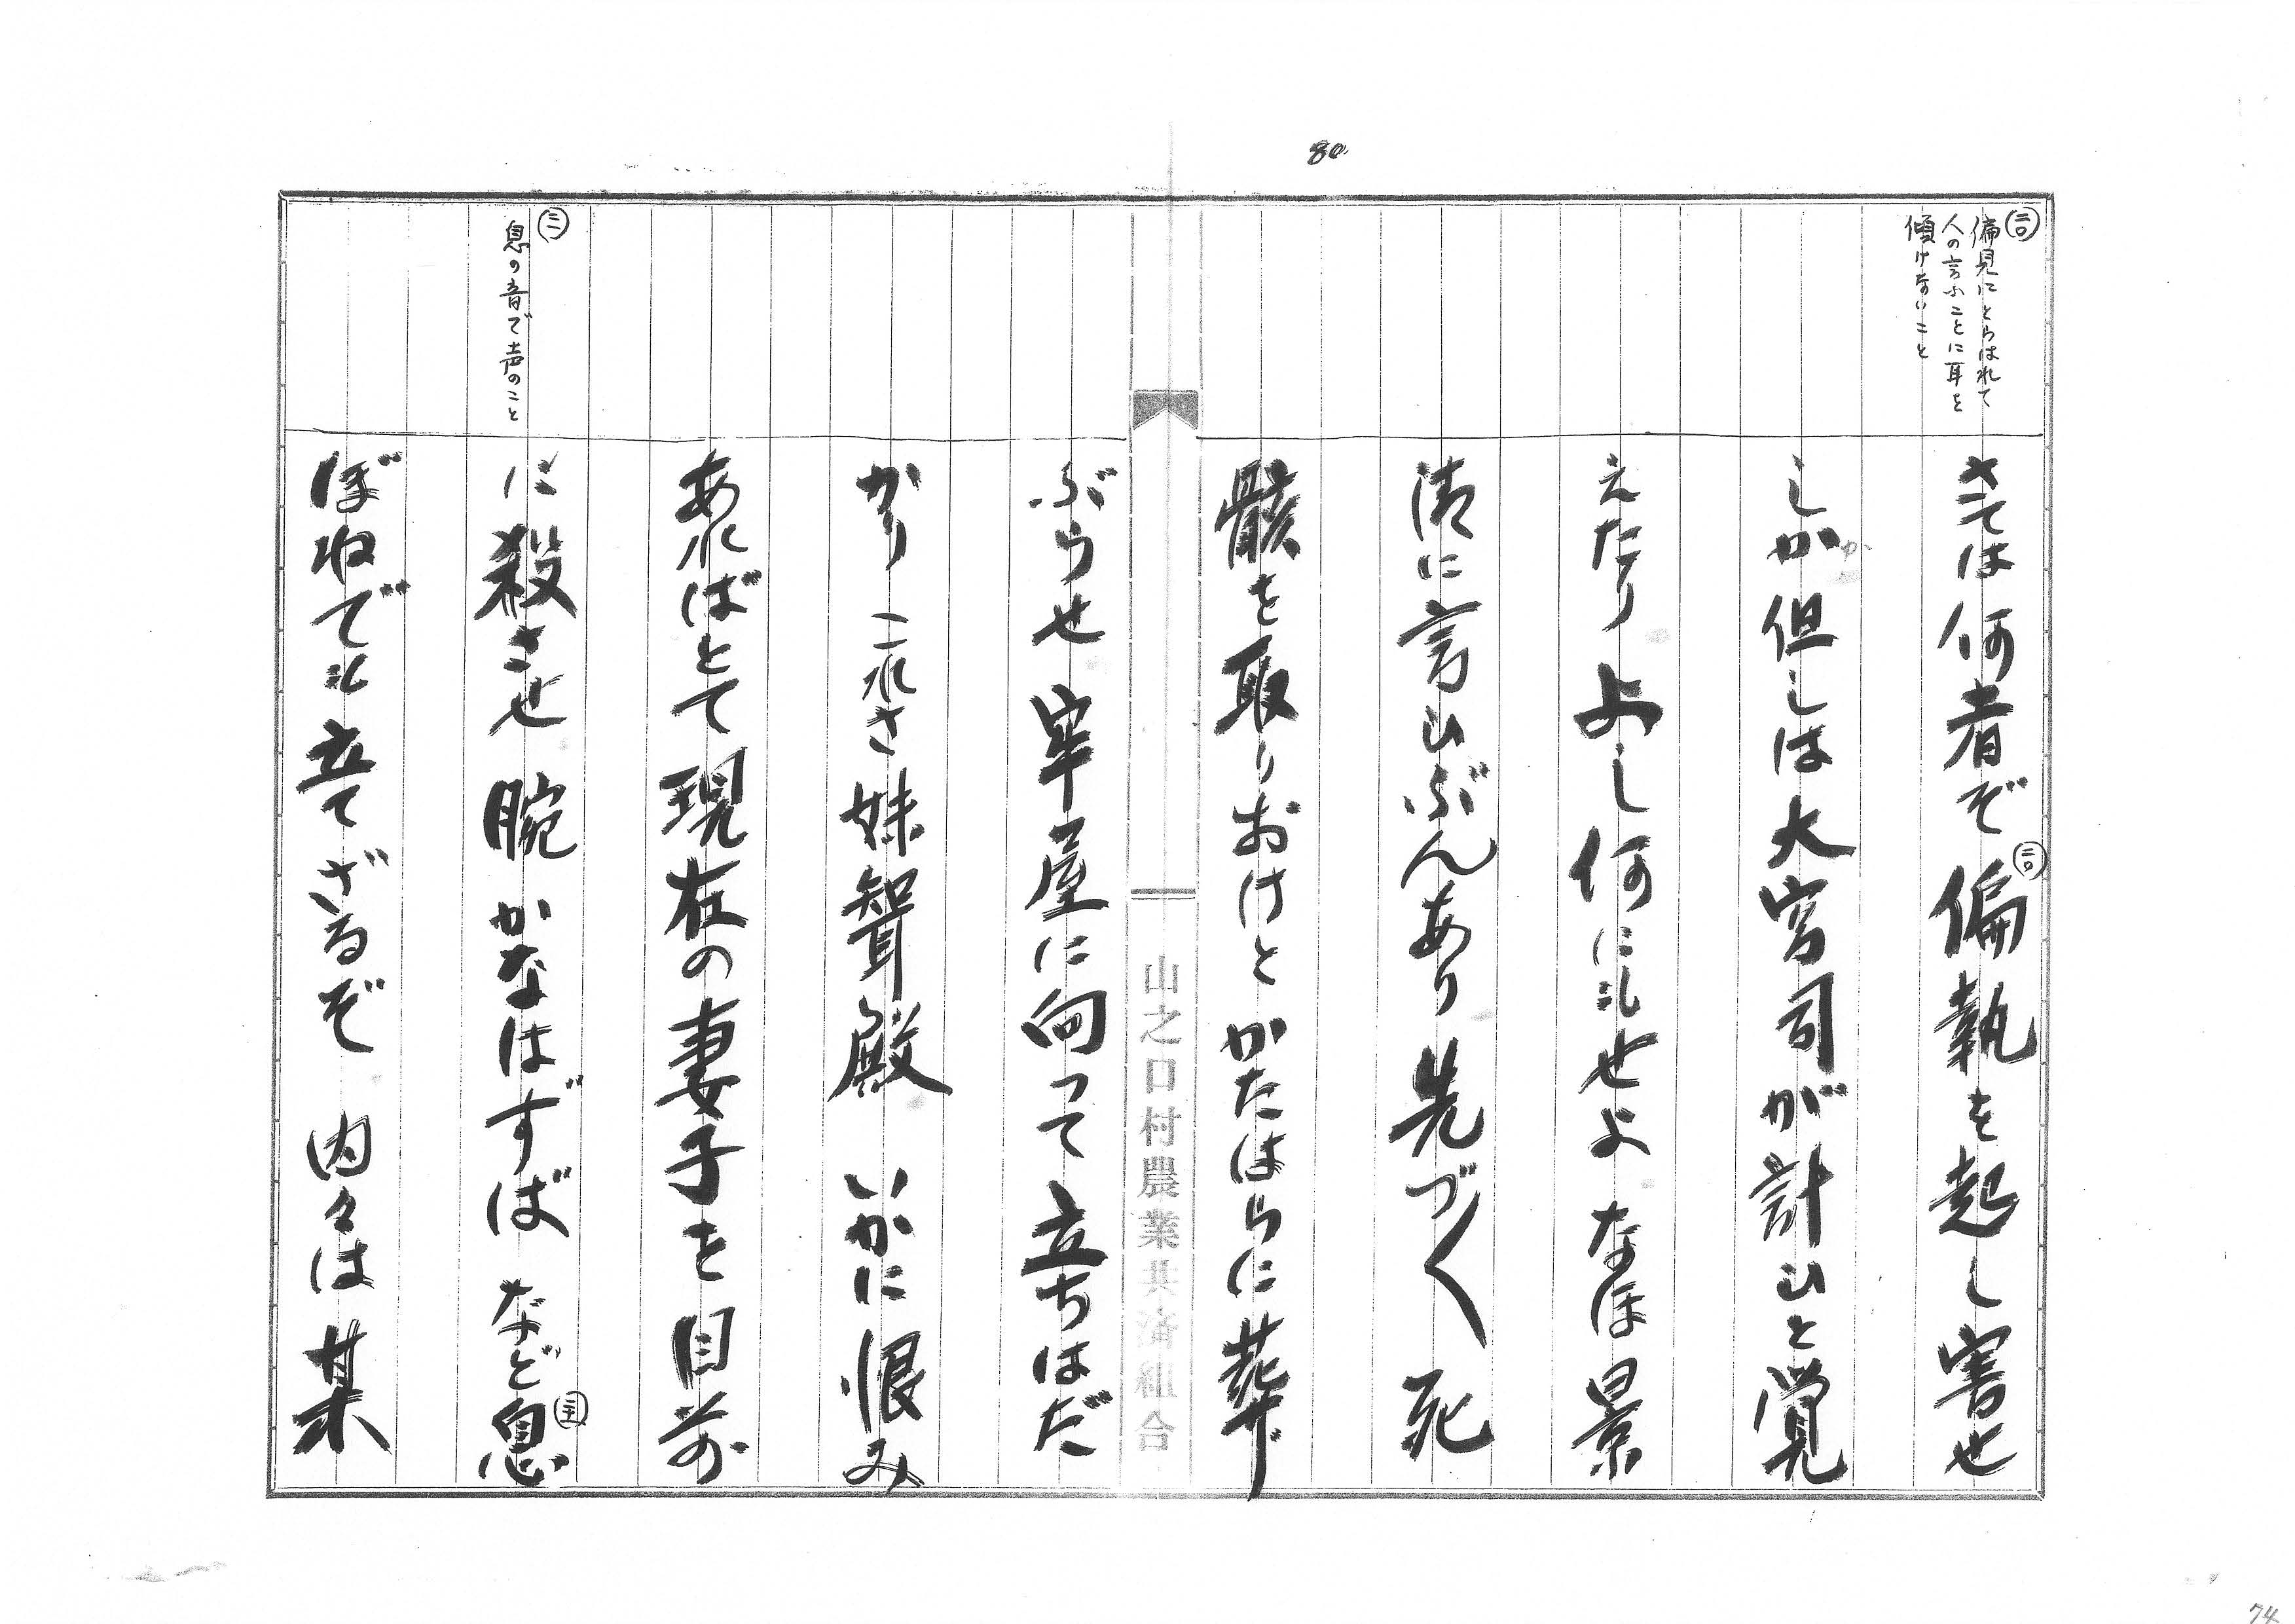 80
㊁〇
偏見にとらはれて
人の言ふことに耳を
傾けないこと
さては何者ぞ偏執を起し害せ
しか但しは大宮司が計ひと覚
えたり よし何にもせよ なほ景
清に言ひぶんあり 先づ〱 死
骸を取りおけと かたはらに葬
ぶらせ 牢屋に向って 立ちはだ
かり これさ 妹聟殿 いかに 恨み
あればとて 現在の妻子を目前
に殺させ 腕かなはずば など息
ぼねでも立てざるぞ 内々は 某
息の音で声のこと
山之口村農業共済組合
74